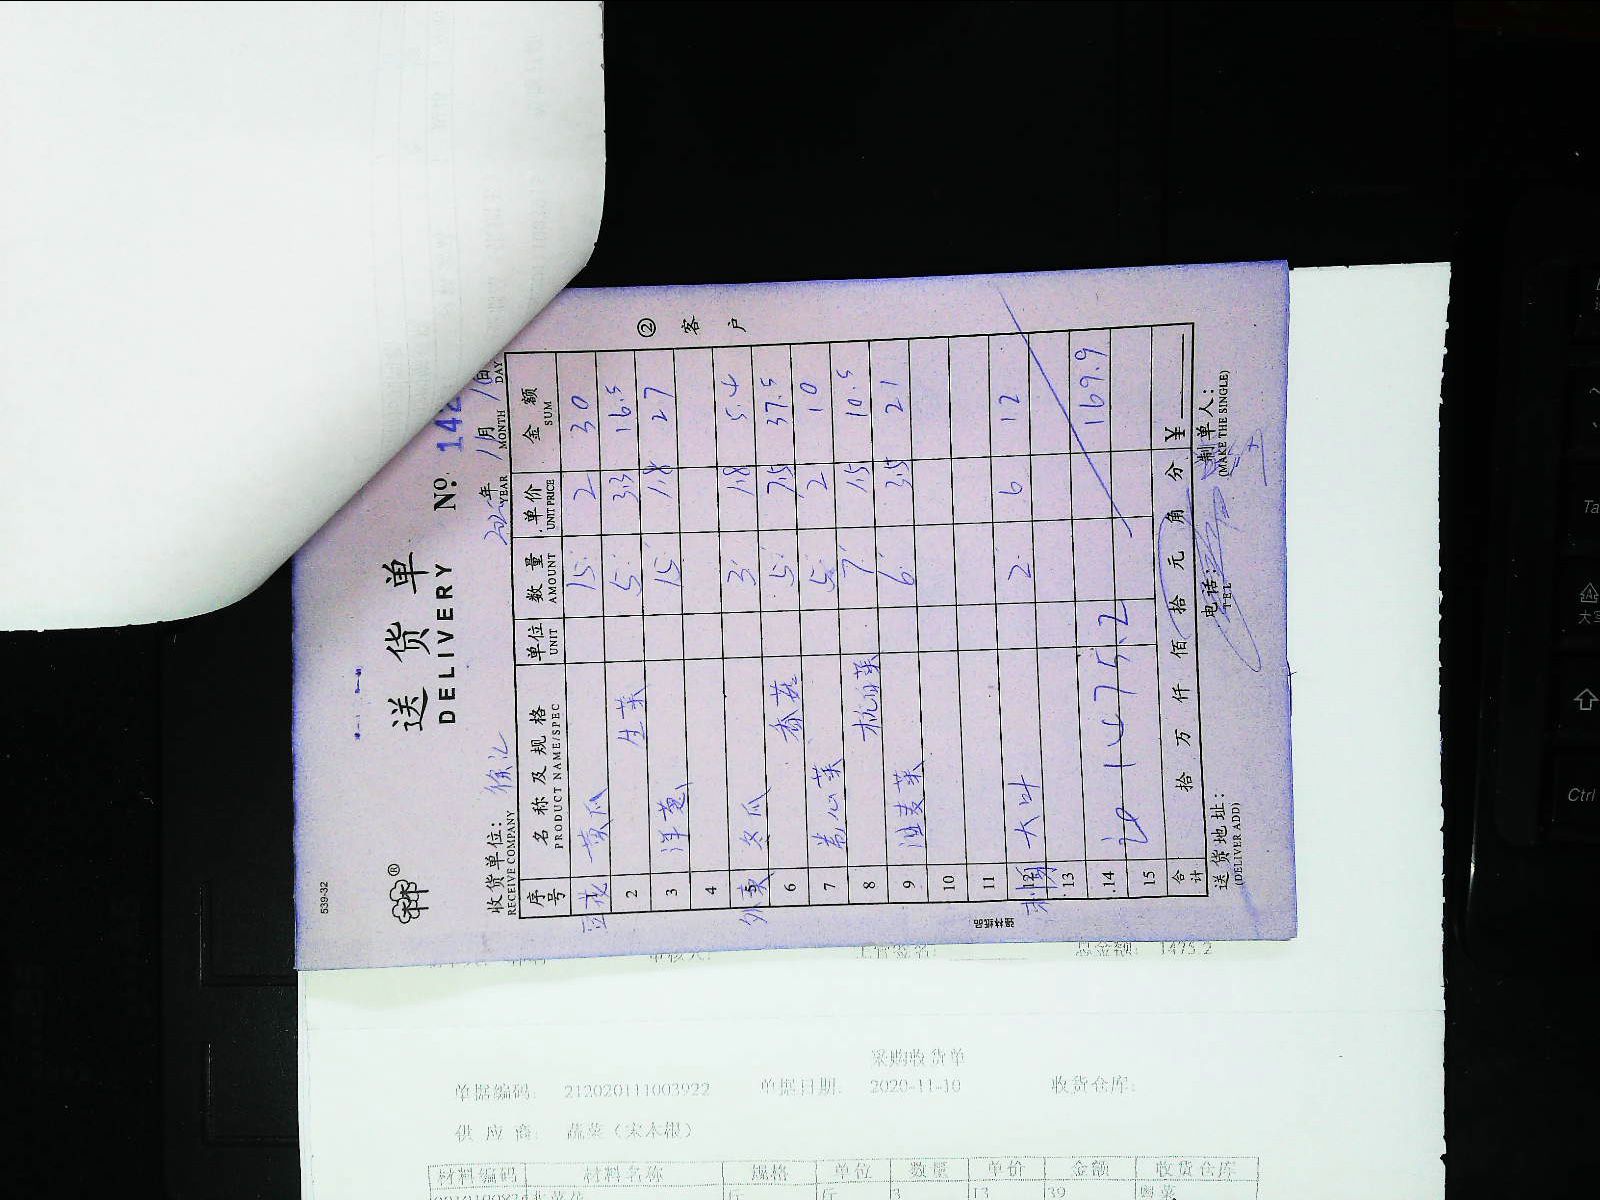 539-32
送货单
DELIVERY Nº 142
收货单位： 徐汇 年 11月 日
RECEIVE COMPANY YEAR MONTH DAY
序号 名称及规格 单位 数量 单价 金额
PRODUCT NAME/SPEC UNIT AMOUNT UNIT PRICE SUM
1 黄瓜 15 2 30
2 生菜 5 3.3 16.5
3 洋葱 15 1.8 27
4
5 冬瓜 3 1.8 5.4
6 香菇 5 7.5 37.5
7 卷心菜 5 2 10
8 杭白菜 7 1.5 10.5
9 6 3.5 21
10
11
12 大叶 2 6 12
13
14 169.9
15 1475.2
合计 拾 万 仟 佰 拾 元 角 分 ¥
送货地址： 电话： 制单人：
(DELIVER ADD) TEL (MAKE THE SINGLE)
② 客户
强林纸品
1475.2
采购收货单
单据编码: 212020111003922 单据日期: 2020-11-10 收货仓库:
供应商: 蔬菜（宋本根）
材料编码 材料名称 规格 单位 数量 单价 金额 收货仓库
斤 斤 3 13 39 粤菜
Ctrl